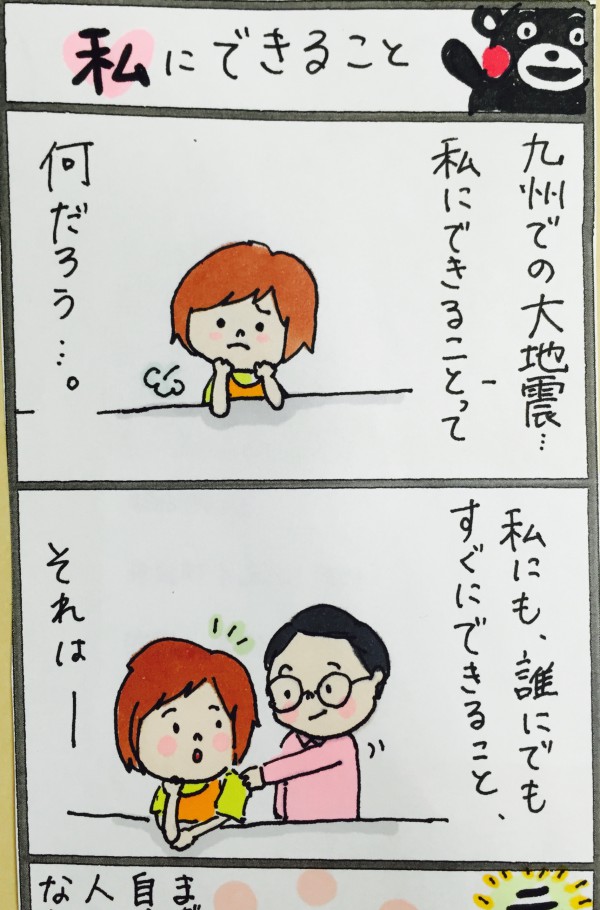 私にできること
九州での大地震…
私にできることって
何だろう…。
私にも、誰にでも
すぐにできること、
それは―